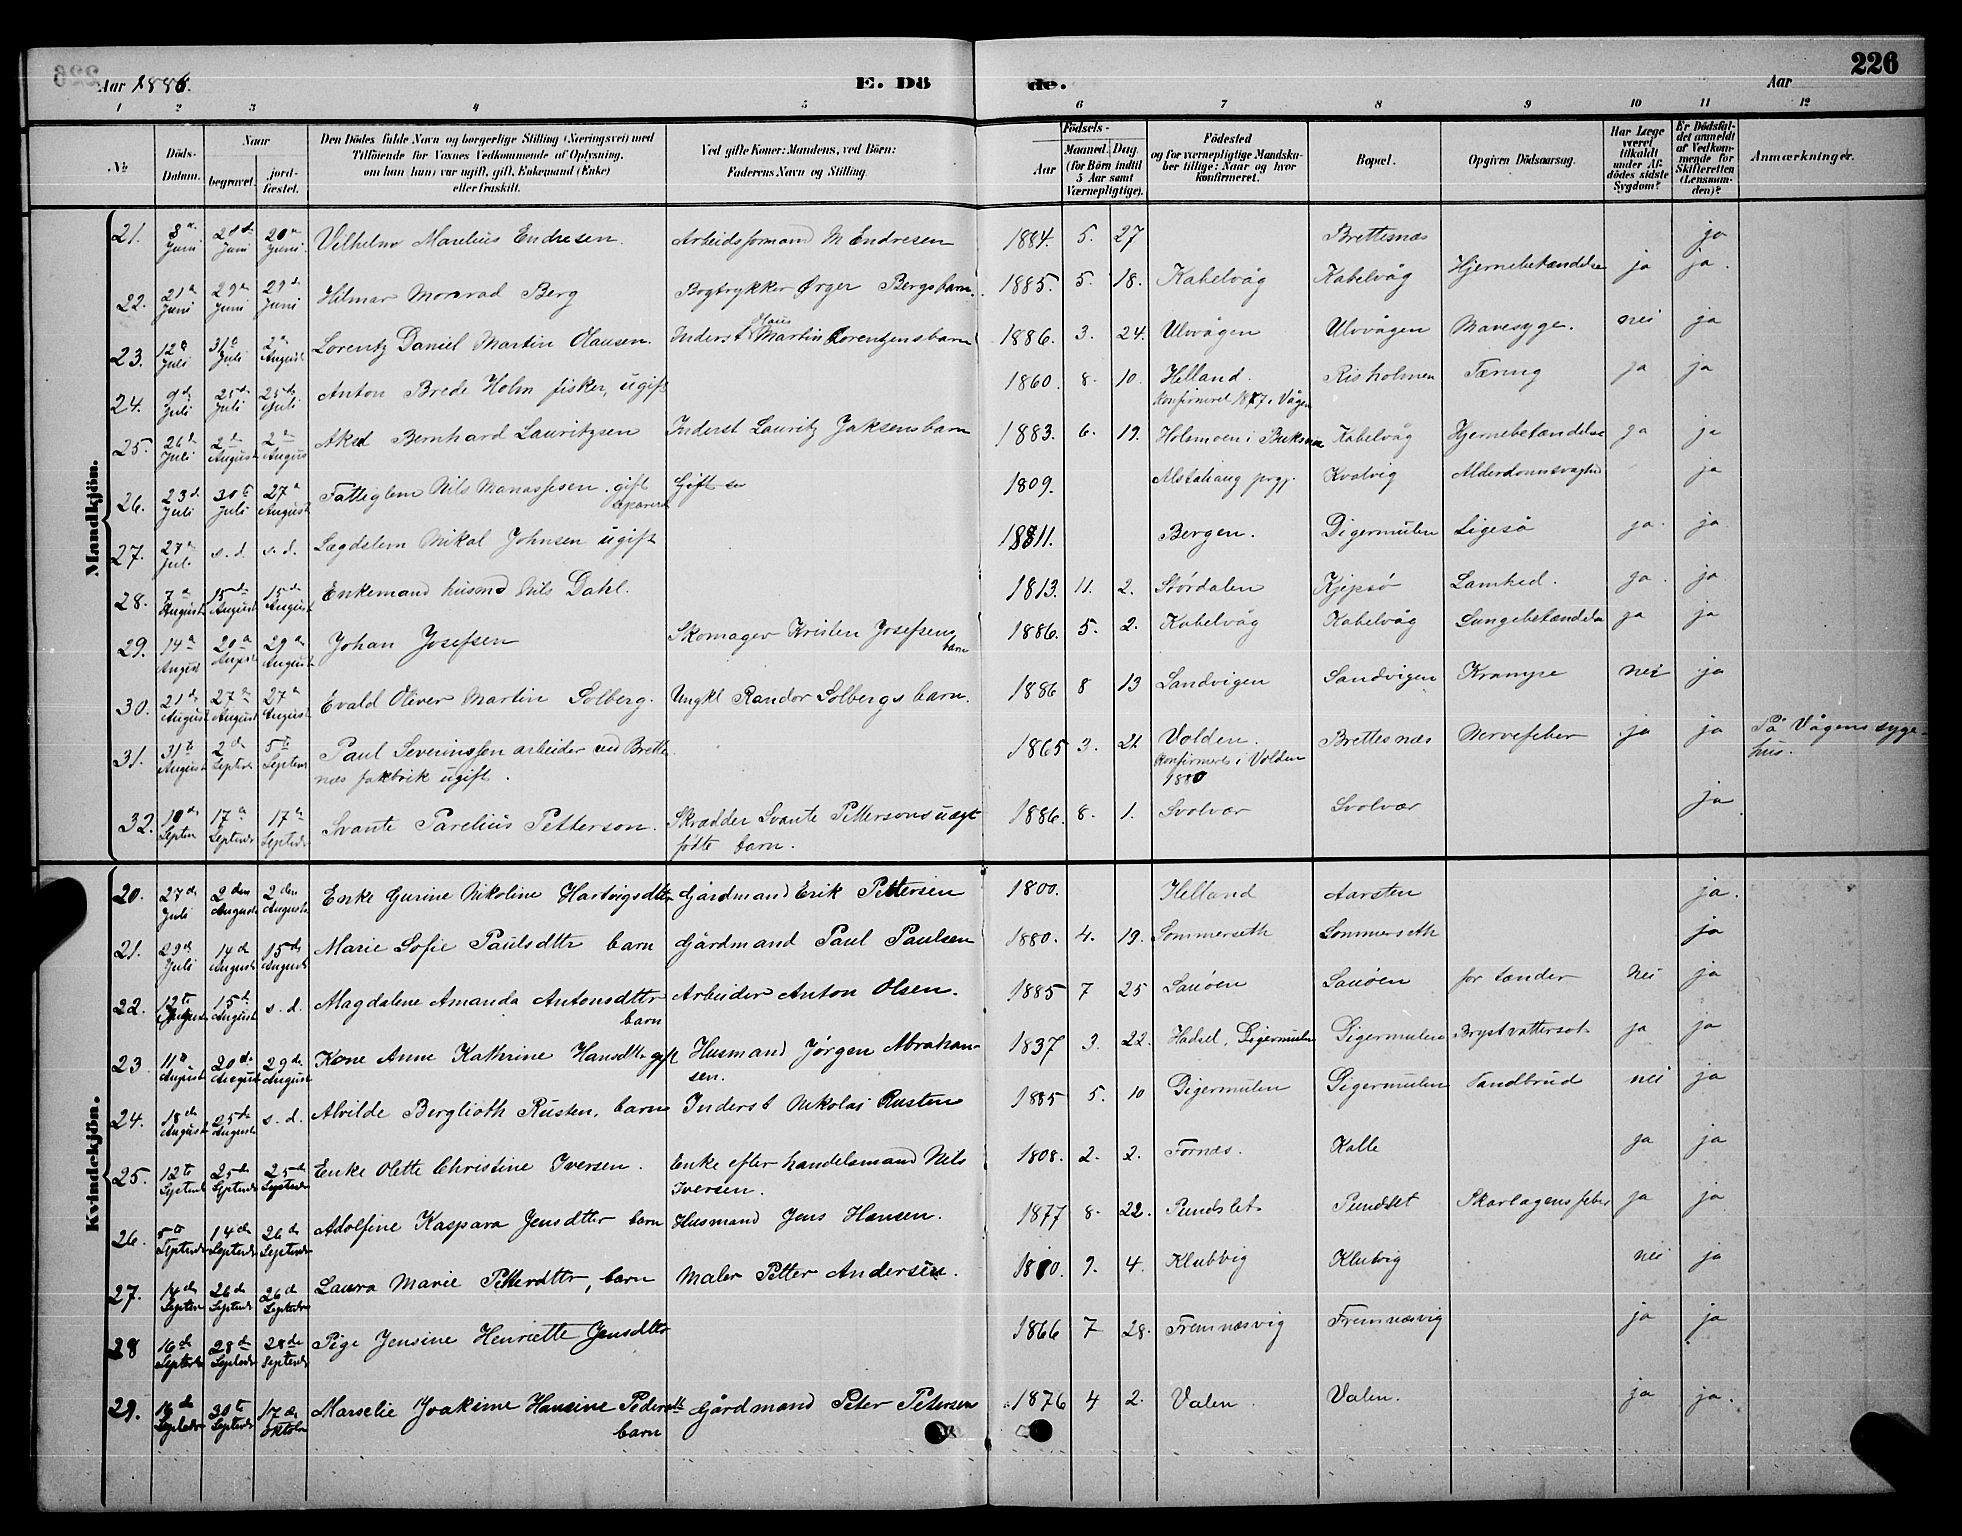 226
Aar 1886. E. Dö de. Aar
1 2 3 4 5 6 7 8 9 10 11 12
No Döds-Datum. Naar begravet. jordfæstet. Den Dödes fulde Navn og borgerlige Stilling (Næringsvei) med Tilföiende for Voxnes Vedkommende af Oplysning, om han (hun) var ugift, gift, Enkemand (Enke) eller fraskilt. Ved gifte Koner: Mandens, ved Börn: Faderens Navn og Stilling. Födsels- Aar Maaned. Dag. (for Börn indtil 5 Aar samt Værnepligtige). Födested og for værnepligtige Mandskaber tillige: Naar og hvor konfirmeret. Bopæl. Opgiven Dödsaarsag. Har Læge været tilkaldt under Afdödes sidste Sygdom? Er Dödsfaldet anmeldt af Vedkommende for Skifteretten (Lensmanden)? Anmærkninger.
Mandkjön.
21. 8 Juni Juni 20 Juni Vilhelm Marelius Endresen. Arbeidsformand M Endresen 1884. 5. 27 Brettesnæs ja
22. 21 Juni 29 Juni 29 Juni Hilmar Berg Bogtrykker Ørger Bergs barn. 1885. 5. 18. Kabelvåg Kabelvåg Hjernebetændelse ja ja.
23. 12 Juli 31 Juli 2 August Lorentz Daniel Martin Olausen. Inderst Hans Martin Lorentzens barn 1886. 3. 24. Ulvvågen Ulvvågen Mavesyge. nei ja
24. 9d Juli 25d Juli 25d Juli Anton Brede Holm fisker, ugift 1860. 8. 10. Helland. konfirmeret 1877 i Vågen Risholmen Tæring ja ja
25. 26 Juli 2 August 2 August Aksel Bernhard Lauritzsen Inderst Lauritz Jaksens barn 1883. 6. 19. Holsmoen i Buksnæs Kabelvåg Hjernebetændelse ja ja
26. 23d Juli 30 Juli 27 August Fattiglem Nils Manassesen gift separeret Gift se 1809. Alstahaug prgj. Kvalvig Alderdomssvaghed ja
27. 27 Jul. s. d. s. d. Lægdslem Nikol Johnsen ugift 1811. Bergen. Digermulen Ligeså ja. ja
28. 7 August 15d August 15d August Enkemand husmd Nils Dahl. 1813. 11. 2. Stördalen Kjepsö Lamhed. ja. ja
29. 14 August 20 August 29 August Johan Josefsen Skomager Kristen Josefsens barn 1886. 5. 2. Kabelvåg Kabelvåg Lungebetændelse ja ja
30. 21d August 27 August 27 August Evald Oliver Martin Solberg. Ungkl Randor Solbergs barn. 1886 8 13 Sandvigen Sandvigen Krampe nei ja
31. 31t August 2d Septbr 5t Septbr Paul Severinssen arbeider ved Brettesnæs fabrik ugift. 1865 3. 21 Volden. konfirmeret i Volden 1880 Brettesnæs Nervefeber ja ja På Vågens sygehus.
32. 10d Septbr 17 Septbr 17 Septbr Svante Parelius Petterson. Skrædder Svante Pettersons uægtefödte barn. 1886. 8. 1. Svolvær Svolvær ja
Kvindekjön.
20. 27d Juli 2den August 2den August Enke Gurine Nikoline Hartvigsdttr Gårdmand Erik Pettersen 1800. Helland Aarsten ja.
21. 29d Juli 14d August 15d August Marie Sofie Paulsdttr barn Gårdmand Paul Paulsen 1880. 4. 19. Sommerseth Sommerseth ja
22. 12t August 15d August s. d. Magdalene Amanda Antonsdttr barn Arbeider Anton Olsen. 1885 7 25 Sauöen Sauöen for tænder nei ja
23. 11t August 20d August 29d August Kone Anne Kathrine Hansdttr gift Husmand Jörgen Abrahansen. 1837 3. 22. Hadsel, Digermulen Digermulen Brystvattersot ja ja
24. 18d August 25d August s. d. Alvilde Berglioth Rusten, barn Inderst Nikolai Rusten 1885 5. 10 Digermulen Digermulen Tandbrud nei ja
25. 12t Septbr 25d Septbr 25d Septbr Enke Olette Christine Iversen. Enke efter handelsmand Nils Iversen. 1808. 2. 2. Fornæs. Kalle ja ja
26. 5t Septbr 14d Septbr 26d Septbr Adolfine Kaspara Jensdttr barn Husmand Jens Hansen. 1877 8. 22. Pundslet. Pundslet Skarlagensfeber ja ja
27. 14d Septbr 26d Septbr 26d Septbr Laura Marie Petterdttr, barn Maler Petter Andersen. 9. 4. Klubvig Klubvig nei ja
28 16d Septbr 28d Septbr 28d Septbr Pige Jensine Henriette Jensdttr 1866 7 28. Fremnæsvig Fremnæsvig ja ja
29. 16d Septbr 30t Septbr 17d Oktobr Marselie Joakime Hansine Pedersdtt barn Gårdmand Peter Petersen 1876 4 2. Valen Valen. ja ja.